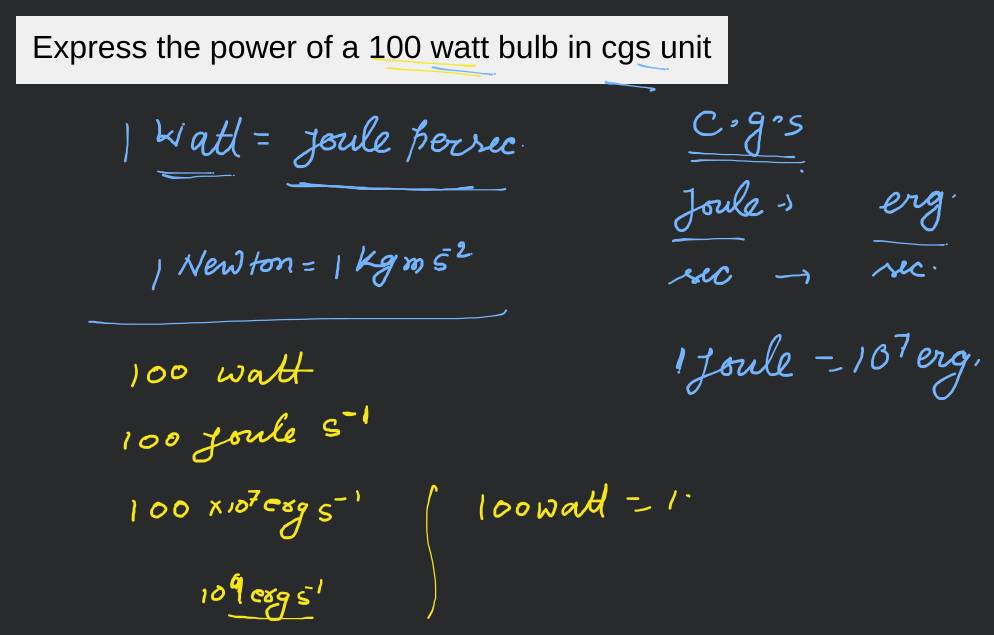 Express the power of a 100 watt bulb in cgs unit
1 Watt = Joule per sec.
1 Newton = 1 kg m s⁻²
C.g.s
Joule → erg.
sec → sec.
1 Joule = 10⁷ erg.
100 watt
100 Joule s⁻¹
100 ×10⁷ erg s⁻¹
10⁹ erg s⁻¹
100 watt = 1.